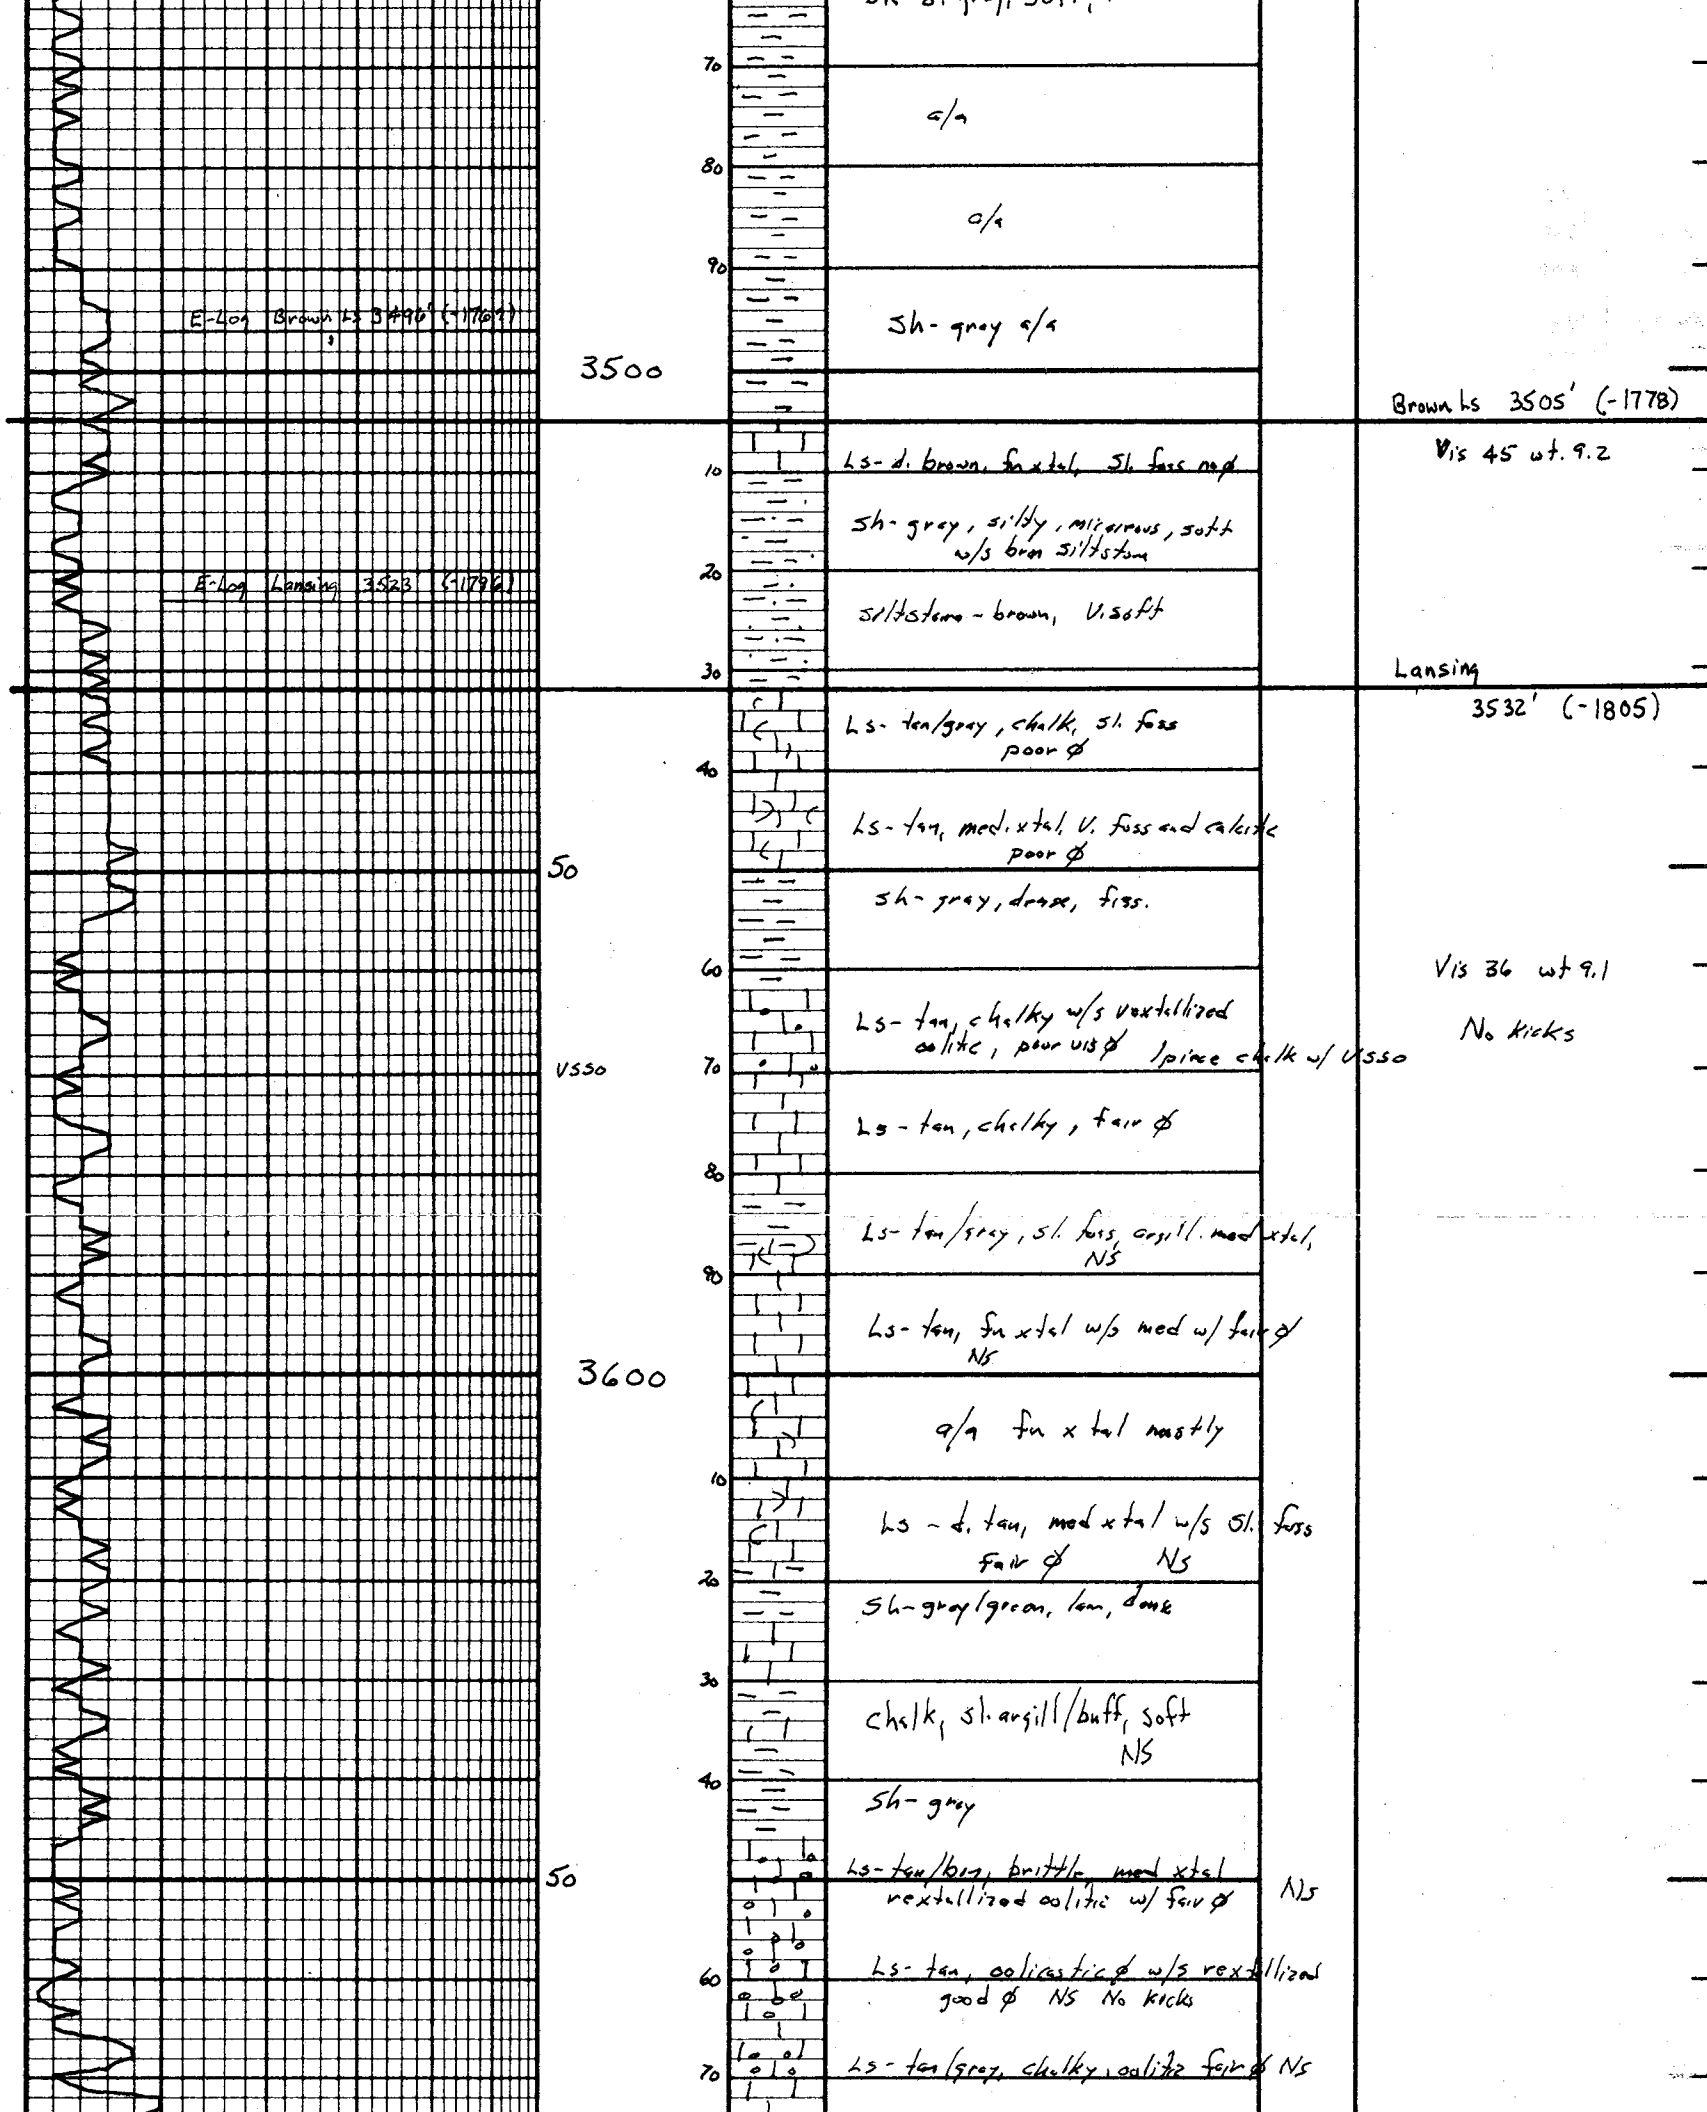 70
a/a
80
a/a
90
E-Log Brown Ls 3496' (-1769)
Sh- gray a/a
3500
Brown Ls 3505' (-1778)
Vis 45 wt. 9.2
10 Ls- d. brown, fn xtal, Sl. foss no ϕ
Sh- gray, silty, micaceous, soft
w/s brn siltstone
20
E-Log Lansing 3523' (-1796)
Siltstone - brown, V. soft
30
Lansing
3532' (-1805)
Ls- tan/gray, chalk, sl. foss
poor ϕ
40
Ls- tan, med. xtal, V. foss and calcite
poor ϕ
50
Sh- gray, dense, fiss.
60
Vis 36 wt 9.1
No Kicks
Ls- tan, chalky w/s rextallized
oolitic, poor vis ϕ 1 piece chalk w/ VSSO
VSSO
70
Ls- tan, chalky, fair ϕ
80
Ls- tan/gray, sl. foss, argill. med xtal,
NS
90
Ls- tan, fn xtal w/s med w/ fair ϕ
NS
3600
a/a fn xtal mostly
10
Ls - d. tan, med xtal w/s Sl. foss
fair ϕ NS
20
Sh- gray/green, lam, dense
30
Chalk, sl. argill/buff, soft
NS
40
Sh- gray
50
Ls- tan/brn, brittle, med xtal
rextallized oolitic w/ fair ϕ NS
Ls- tan, oolicastic ϕ w/s rextallized
60
good ϕ NS No Kicks
70 Ls- tan/gray, chalky, oolitic fair ϕ NS